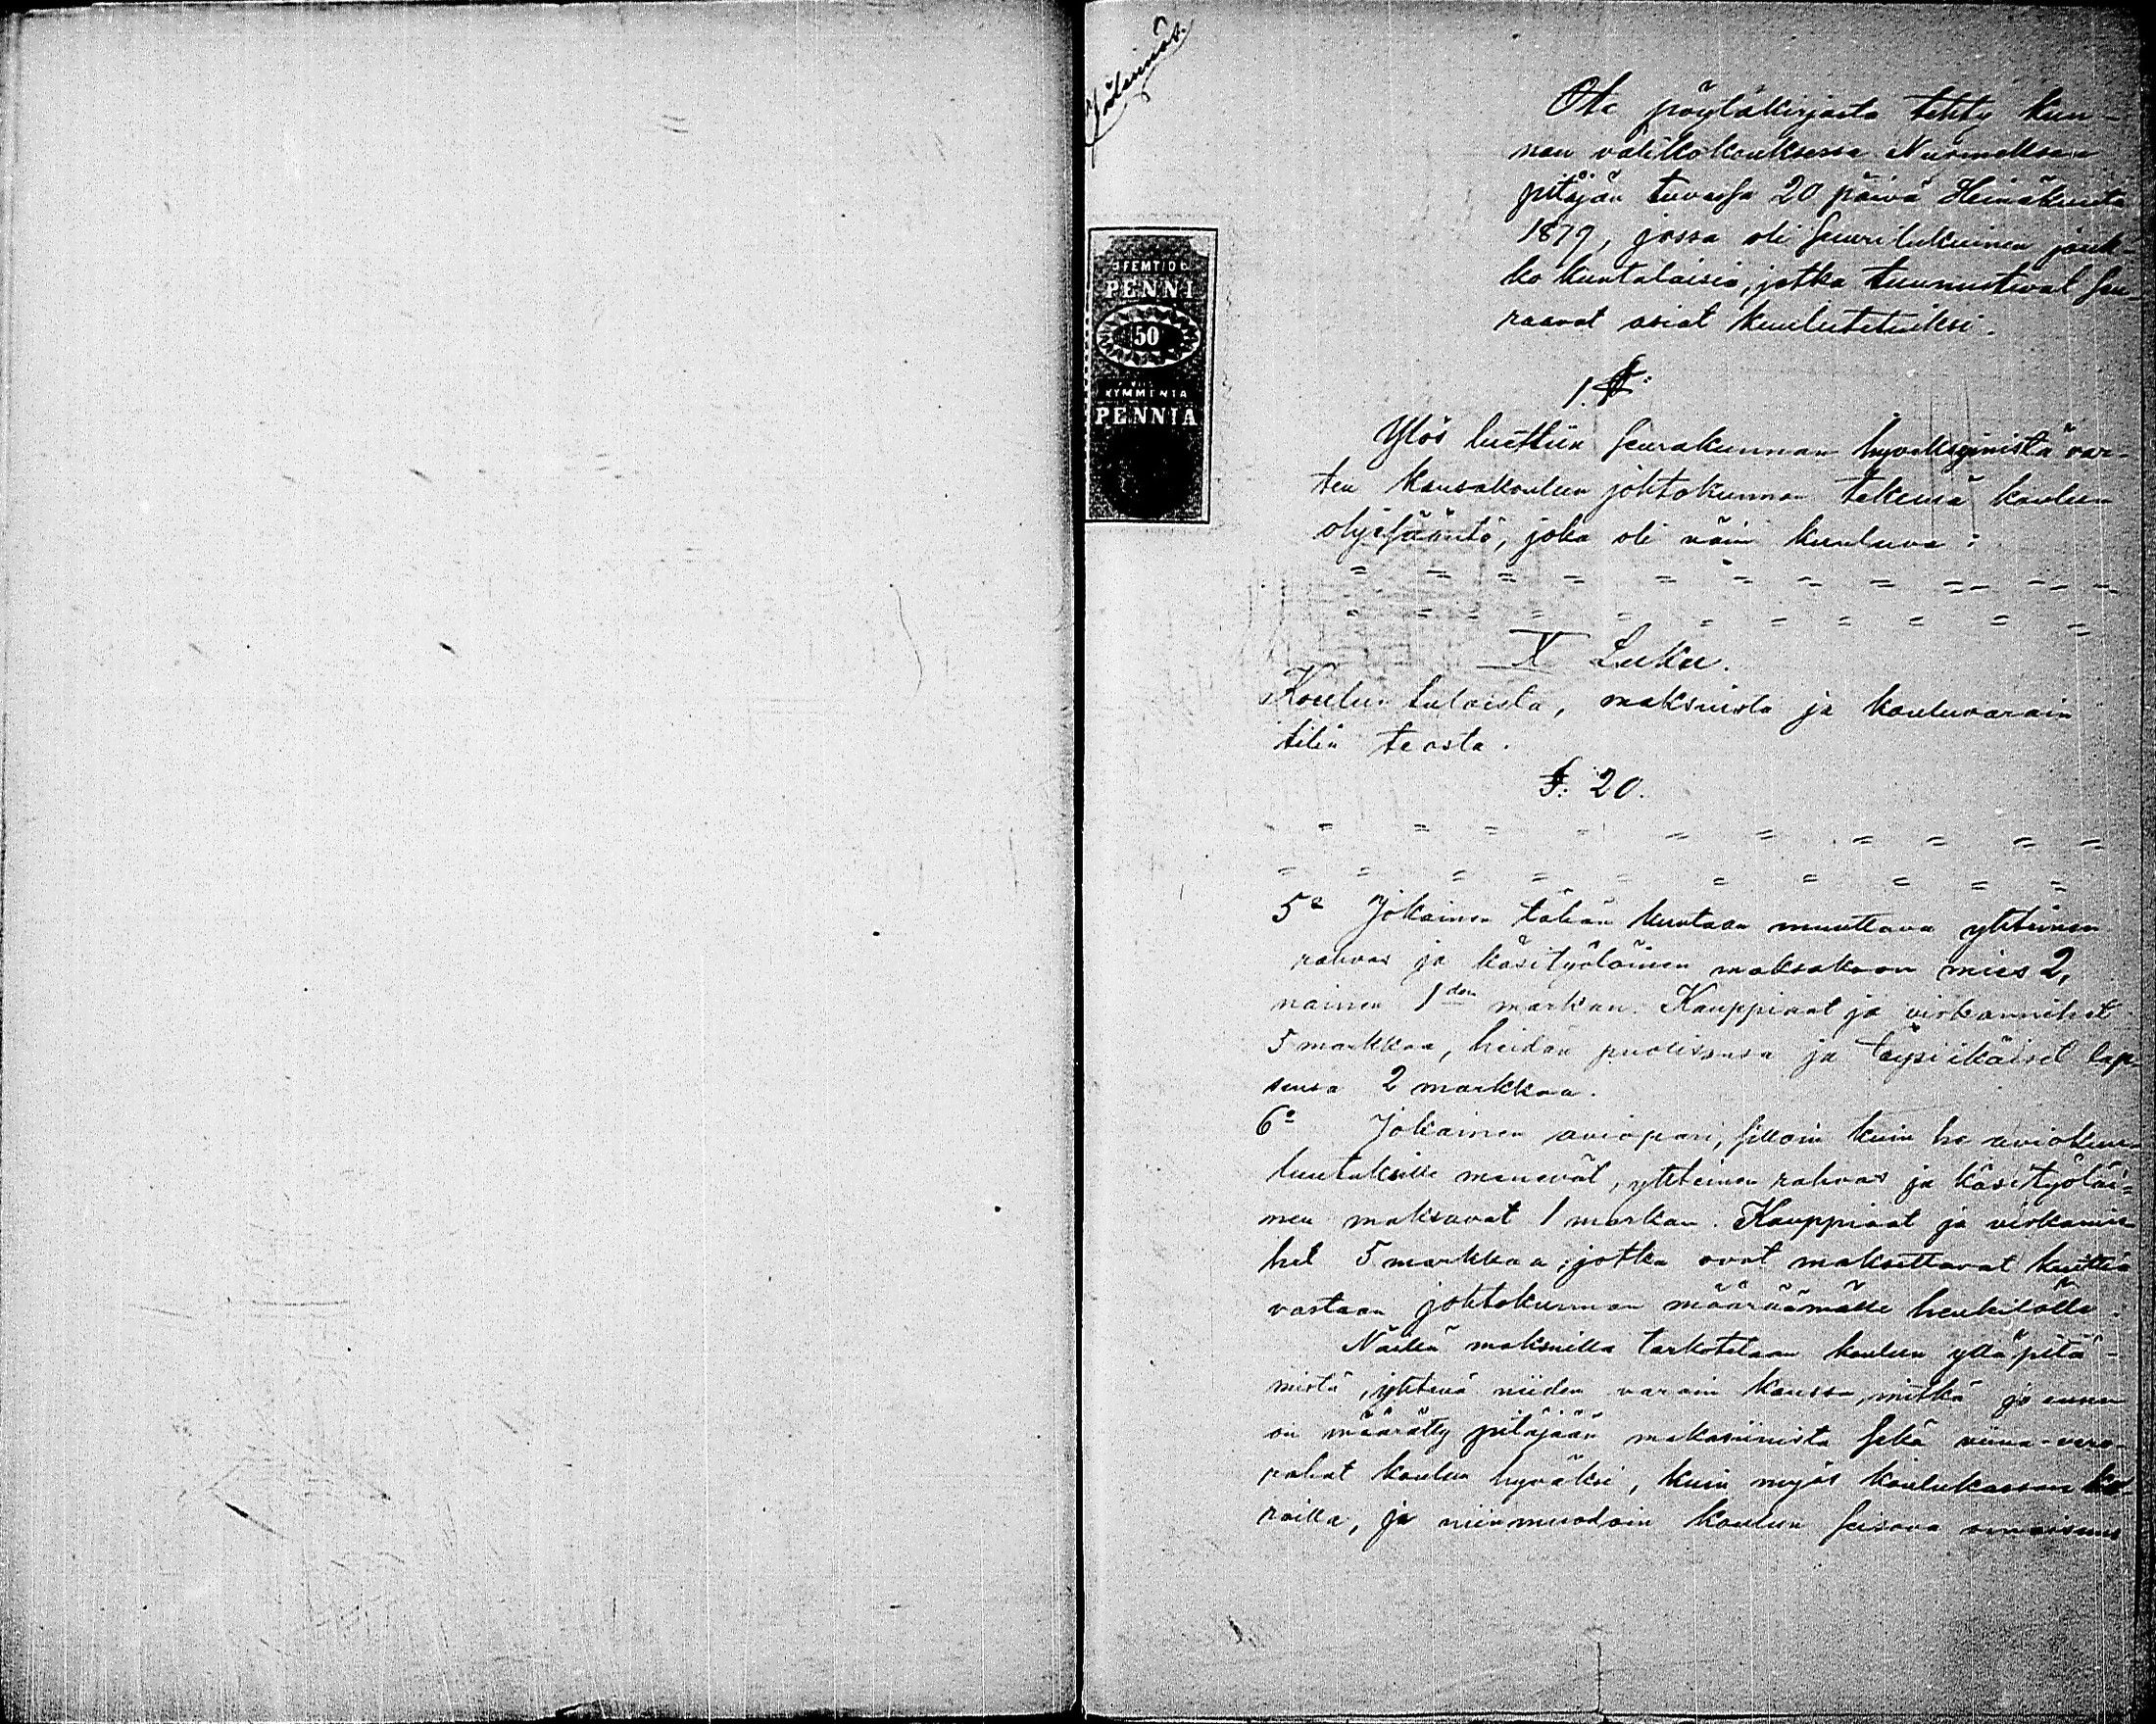 Jäljennös.
Ote pöytäkirjasta tehty kun-
nan välikokouksessa Nurmeksen
pitäjän tuvassa 20 päivä Heinäkuuta
1879, jossa oli suurilukuinen jouk-
ko kuntalaisia, jotka tunnustivat seu-
raavat asiat kuulutetuiksi.
FEMTIO
PENNI
50
KYMMENTÄ
PENNIÄ
1 §:
Ylös luettiin seurakunnan hyväksymistä var-
ten kansakoulun johtokunnan tekemä koulun
ohjesääntö, joka oli näin kuuluva:
= = = = = = = = = = = =
= = = = = = = = = =
X Luku.
Koulun tuloista, maksuista ja kouluvarain
tilin teosta.
§: 20.
= = = = = = = = = =
= = = = = = = = = =
5º Jokainen tähän kuntaan muuttava yhteinen
rahvas ja käsityöläinen maksakoon mies 2,
nainen 1den markan. Kauppiaat ja virkamiehet
5 markkaa, heidän puolisonsa ja täysi ikäiset lap-
sensa 2 markkaa.
6º Jokainen aviopari, silloin kuin he aviokuu-
luutuksille menevät, yhteinen rahvas ja käsityöläi=
nen maksavat 1 markan. Kauppiaat ja virkamie-
het 5 markkaa, jotka ovat maksettavat kuittia
vastaan johtokunnan määräämälle henkilölle.
Näillä maksuilla tarkotetaan koulun yllä pitä-
mistä, yhtenä niiden varain kanssa, mitkä jo ennen
on määrätty pitäjään makasiinista sekä viina-vero-
rahat koulun hyväksi, kuin myös koulukassan ko-
roilla, ja niinmuodoin koulun seisova omaisuus